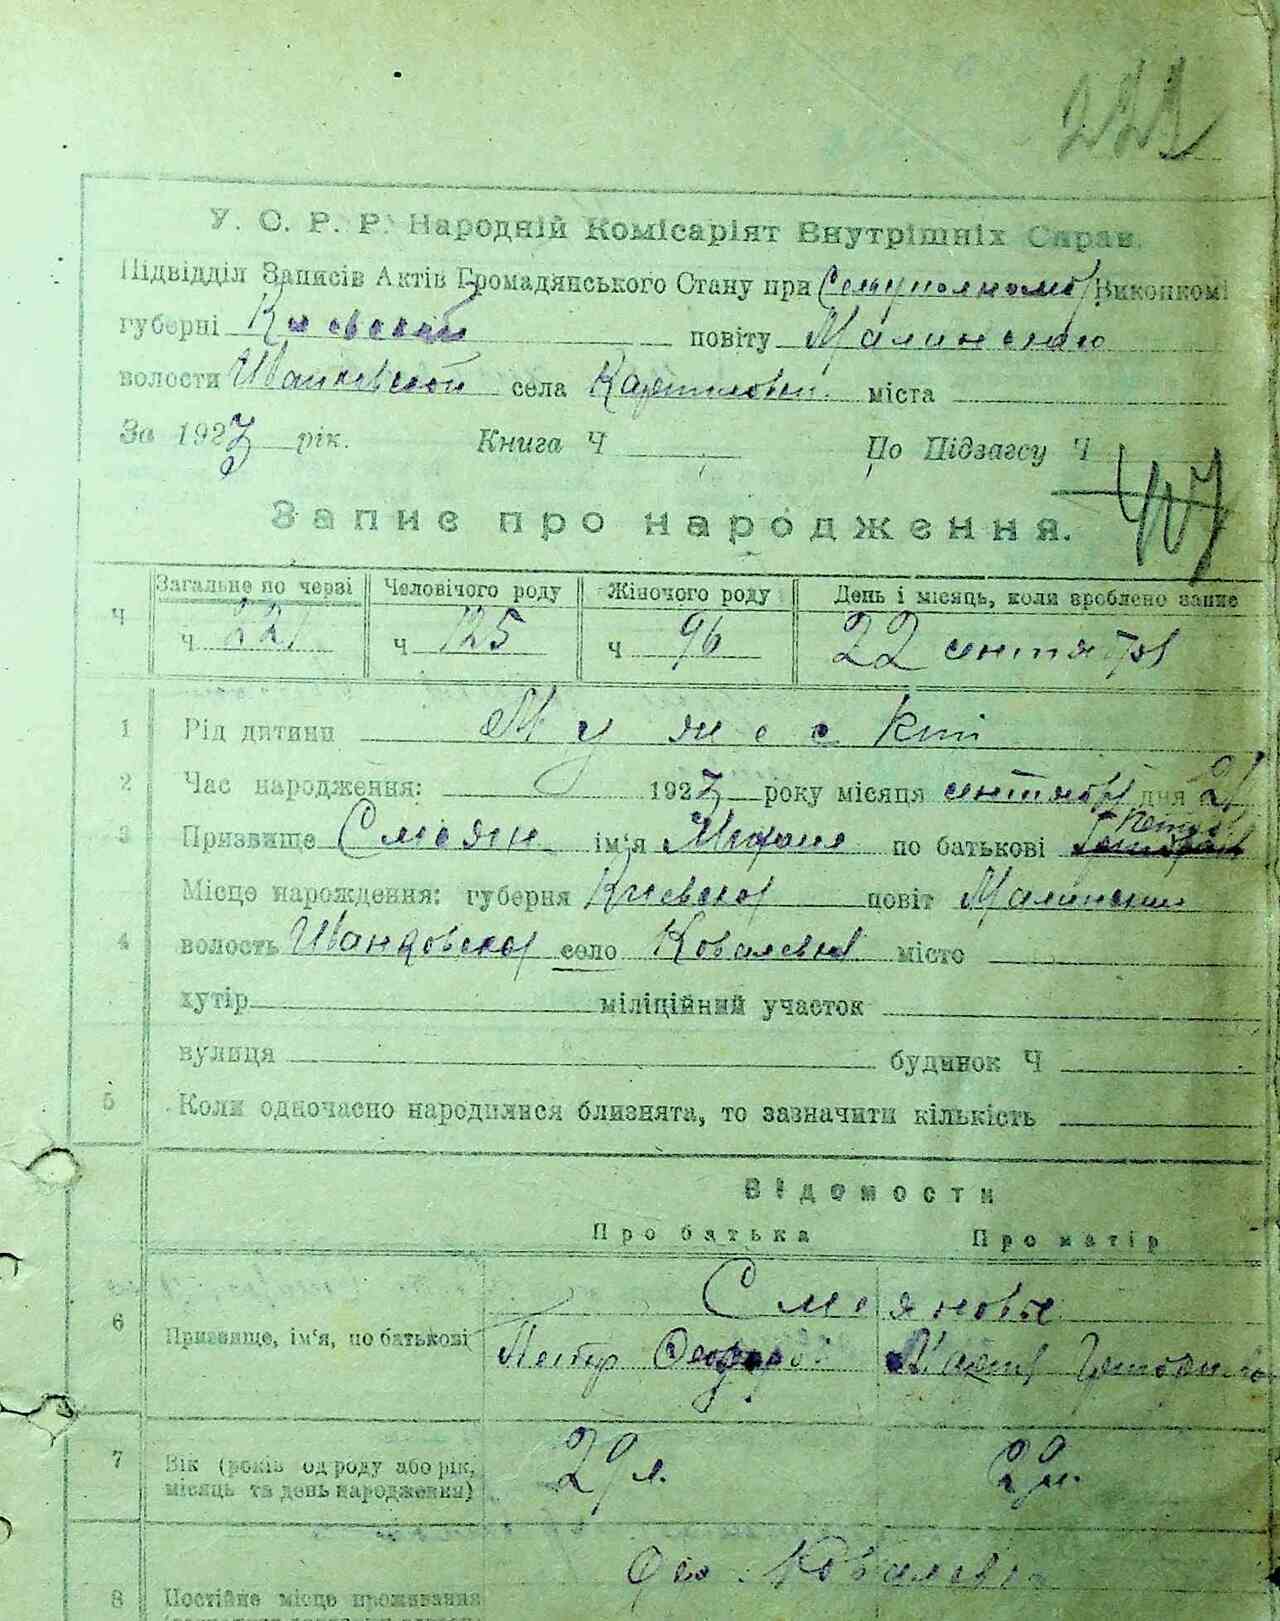 223
У. С. Р. Р. Народній Комісаріят Внутрішніх Справ.
Підвідділ Записів Актів Громадянського Стану при Виконкомі
губерні Киевской повіту Малинского
волости Иванковской села міста
За 1923 рік. Книга Ч По Підзагсу Ч
407
Запис про народження.
Ч Загальне по черзі Человічого роду Жіночого роду День і місяць, коли зроблено запис
ч 221 ч 125 ч 96 22 сентября
1 Рід дитини Мужескій
2 Час народження: 1923 року місяця сентября дня 21
3 Призвище Смоян ім'я по батькові
Місце нарождення: губерня Киевская повіт Малинский
4 волость Иванковская село Ковалевка місто
хутір міліційний участок
вулиця будинок Ч
5 Коли одночасно народилися близнята, то зазначити кількість
Відомости
Про батька Про матір
Смояновы
6 Призвище, ім'я, по батькові Петр
7 Вік (років од роду або рік, 29 л.
місяць та день народження)
8 Постійне місце проживання Ковалевка